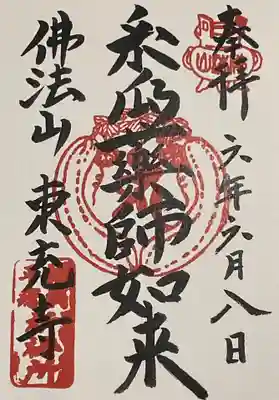 奉拝
六年六月八日
米山薬師如来
佛法山 東充寺